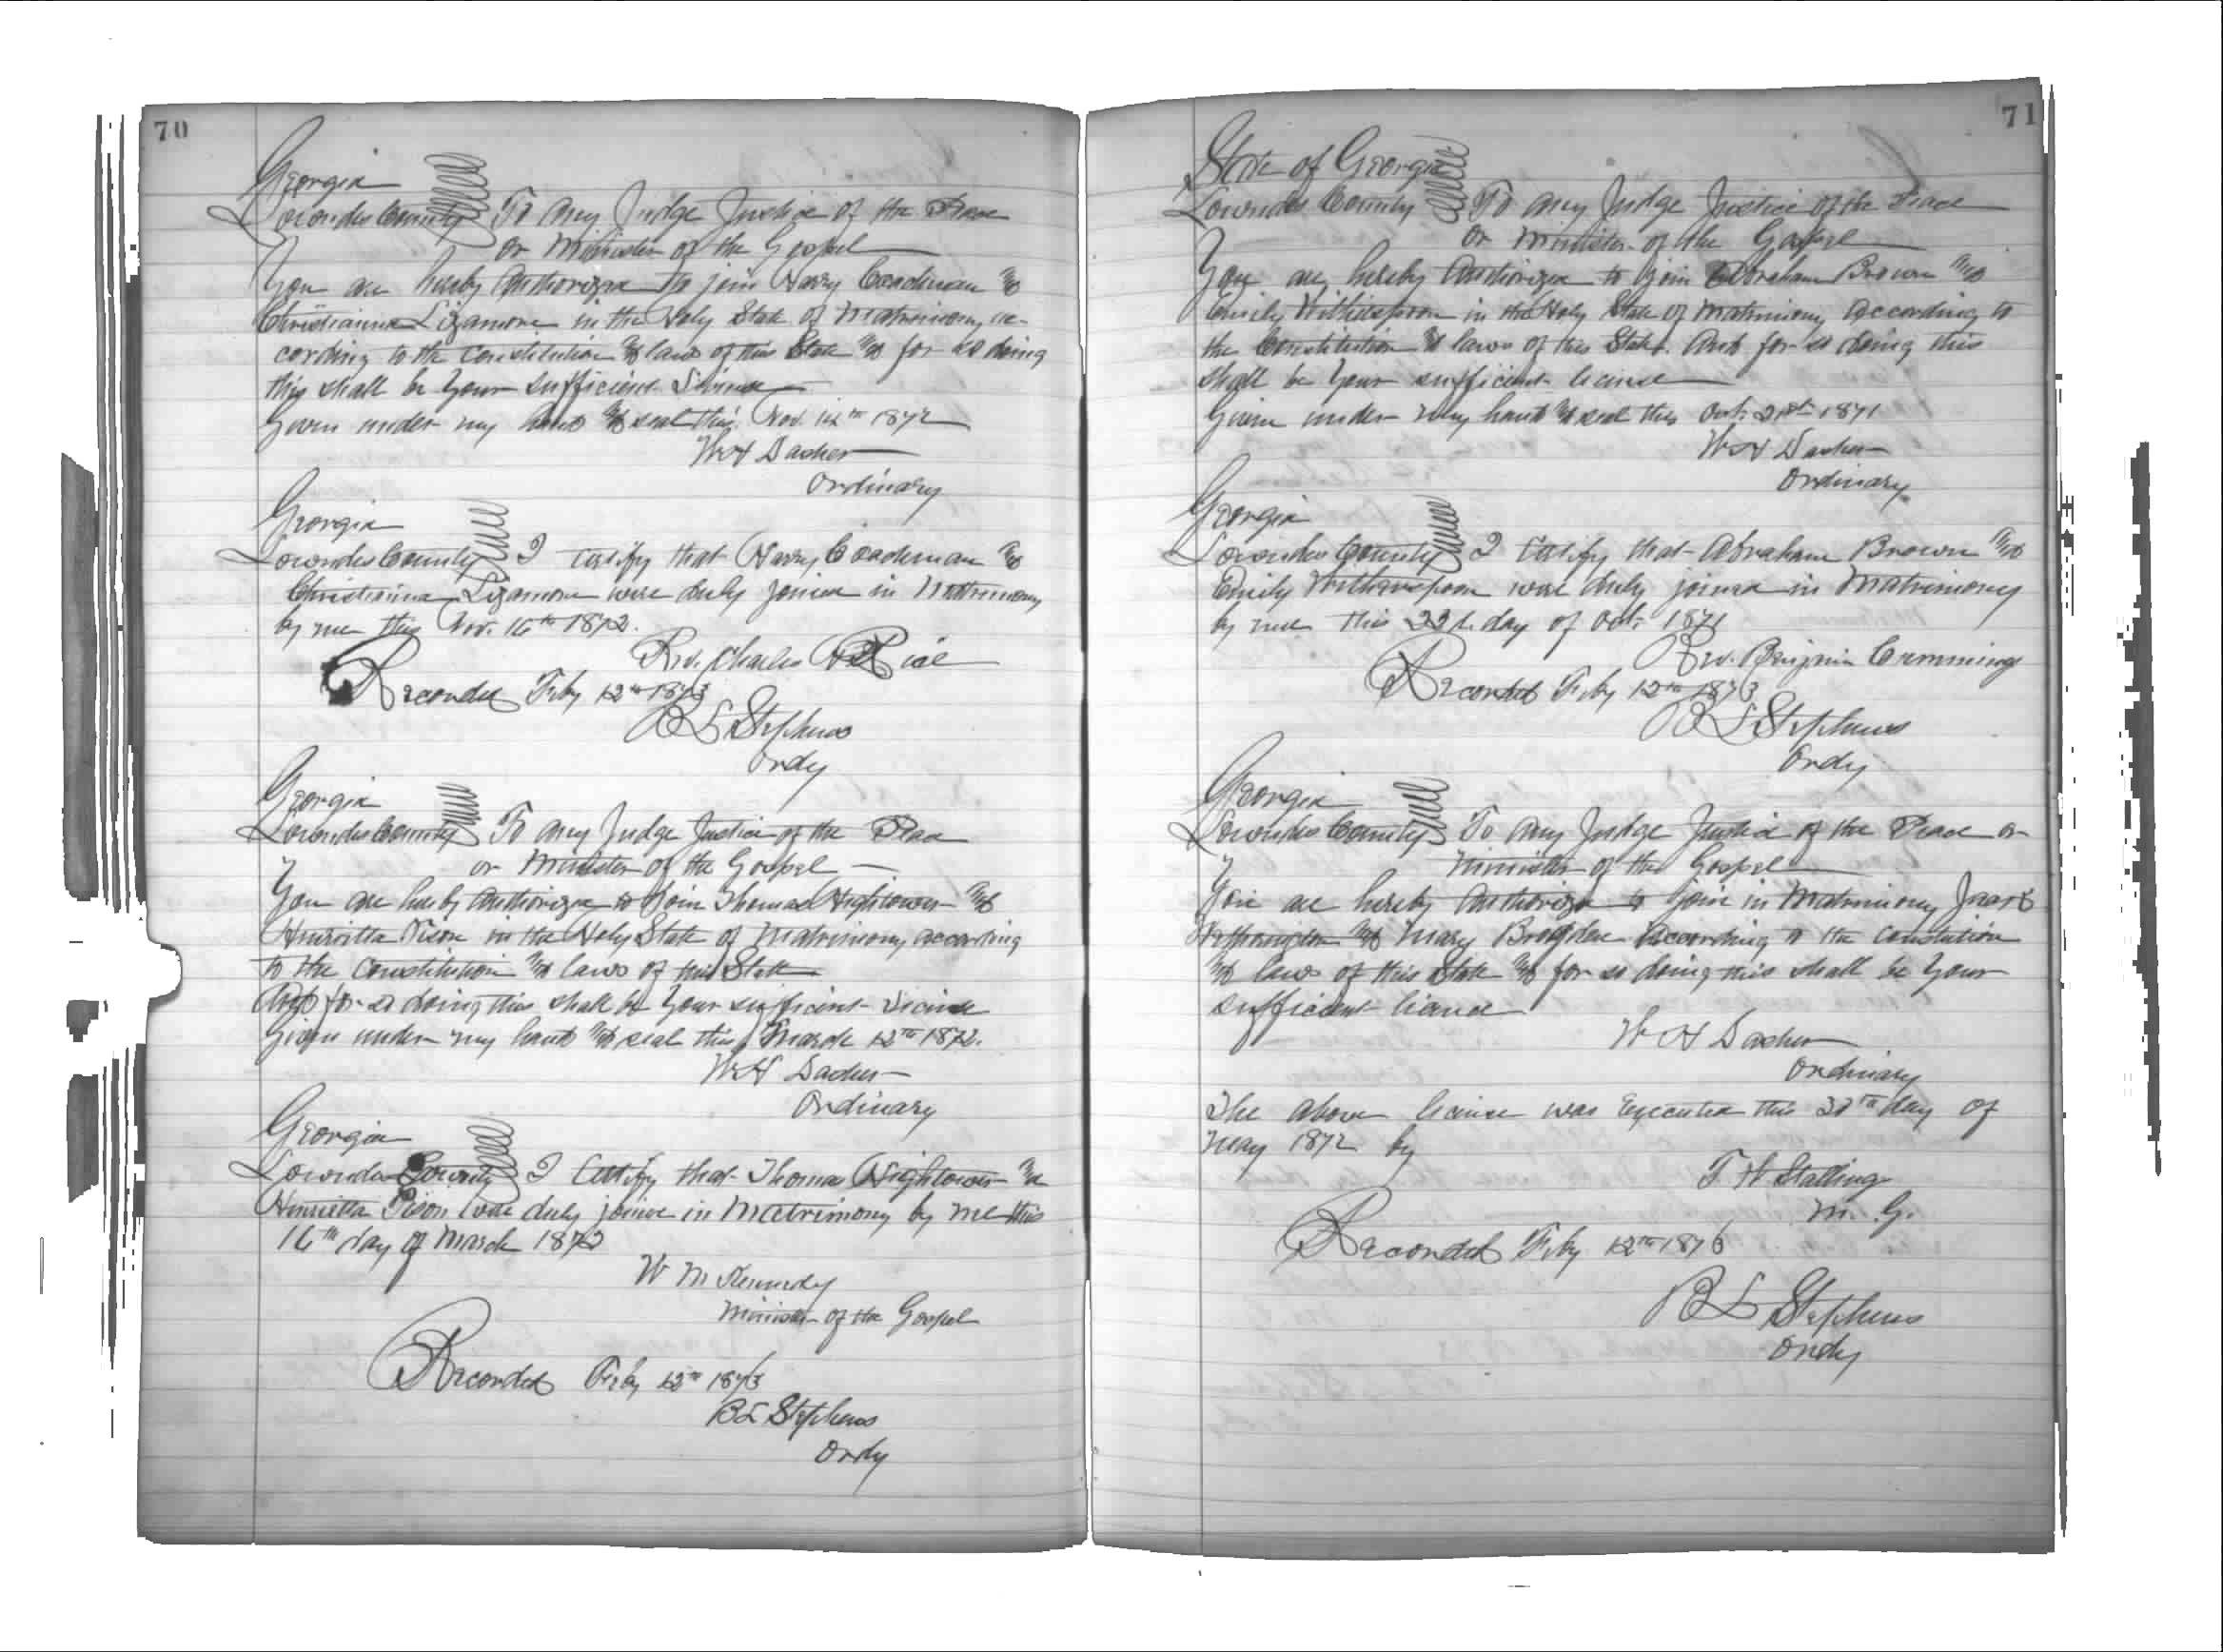 70
Georgia
Lowndes County To Any Judge Justice of the Peace
or Minister of the Gospel
You are hereby Authorized to join Harry Coachman &
Christianna Lizamore in the Holy State of Matrimony ac-
cording to the Constitution & laws of this State & for so doing
this shall be Your sufficient License
Given under my hand & seal this Nov. 14th 1872
W H Dasher
Ordinary
Georgia
Lowndes County I certify that Harry Coachman &
Christianna Lizamore were duly joined in Matrimony
by me this Nov. 16th 1872.
Rev. Charles
Recorded Feby 12th 1873
B L Stephens
Ordy
Georgia
Lowndes County To Any Judge Justice of the Peace
or Minister of the Gospel
You are hereby Authorized to Join Thomas Hightower &
Henrietta Pison in the Holy State of Matrimony according
to the Constitution & laws of this State
And for so doing this shall be Your sufficient License
Given under my hand & seal this March 12th 1872.
W H Dasher
Ordinary
Georgia
Lowndes County I Certify that Thomas Hightower &
Henrietta Pison were duly joined in Matrimony by me this
16th day of March 1872
W M Kennedy
Minister of the Gospel
Recorded Feby 12th 1873
B L Stephens
Ordy
71
State of Georgia
Lowndes County To Any Judge Justice of the Peace
or Minister of the Gospel
You are hereby Authorized to join Abraham Brown &
Emily Witherspoon in the Holy State of Matrimony According to
the Constitution & laws of this State. And for so doing this
shall be Your sufficient license
Given under my hand & seal this Oct. 21st 1871
W H Dasher
Ordinary
Georgia
Lowndes County I Certify that Abraham Brown &
Emily Witherspoon were duly joined in Matrimony
by me this 22d day of Oct. 1871
Rev. Benjmin Cummings
Recorded Feby 12th 1873
B L Stephens
Ordy
Georgia
Lowndes County To Any Judge Justice of the Peace or
Minister of the Gospel
You are hereby Authorized to join in Matrimony
& Mary Brogden According to the Constitution
& laws of this State & for so doing this shall be Your
sufficient license
W H Dasher
Ordinary
The above license was Executed this 30th day of
May 1872 by
T W Stallings
M. G.
Recorded Feby 12th 1873
B L Stephens
Ordy